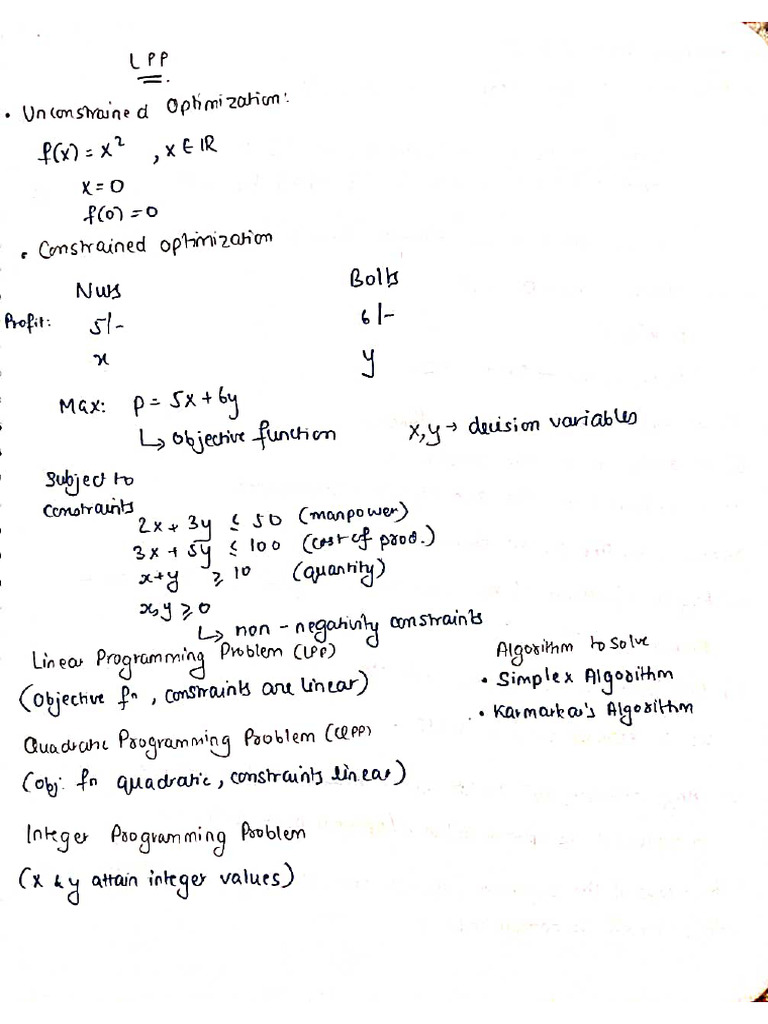 LPP
• Unconstrained Optimization:
f(x) = x² , x ∈ IR
x = 0
f(0) = 0
• Constrained optimization
Nuts Bolts
Profit: 5/- 6/-
x y
Max: P = 5x + 6y
↳ Objective function x, y → decision variables
Subject to
constraints
2x + 3y ≤ 50 (manpower)
3x + 5y ≤ 100 (cost of prod.)
x+y ≥ 10 (quantity)
x, y ≥ 0
↳ non-negativity constraints
Linear Programming Problem (LPP) Algorithm to solve
(Objective fⁿ, constraints are linear) • Simplex Algorithm
• Karmarkar's Algorithm
Quadratic Programming Problem (QPP)
(obj. fn quadratic, constraints linear)
Integer Programming Problem
(x & y attain integer values)